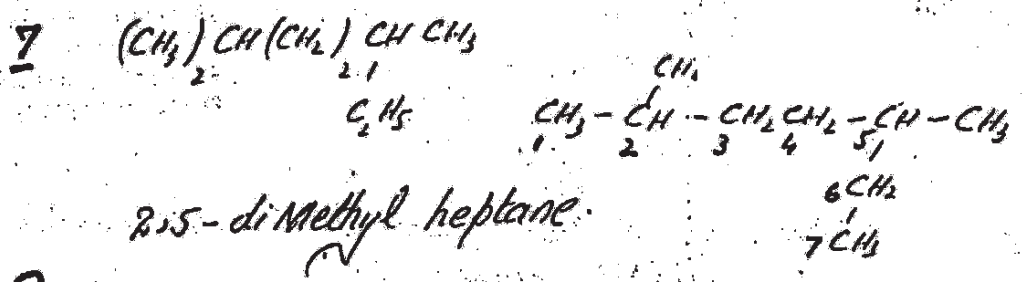 7 (CH3)2 CH (CH2)2 CH CH3
C2H5
CH3
CH3 - CH - CH2 CH2 - CH - CH3
1 2 3 4 5
6 CH2
7 CH3
2,5-diMethyl heptane.